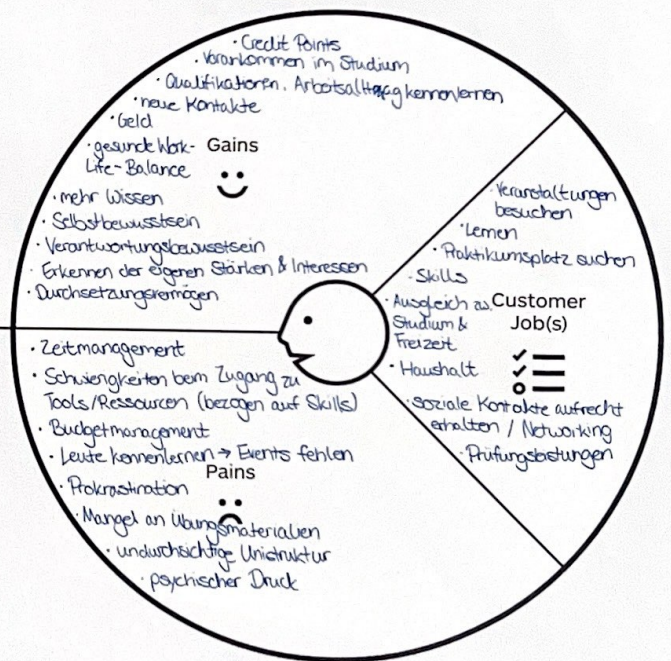 · Credit Points
· Vorankommen im Studium
· Qualifikationen, Arbeitsalltag kennenlernen
· neue Kontakte
· Geld
· gesunde Work-
Life-Balance
Gains
· mehr Wissen
· Selbstbewusstsein
· Verantwortungsbewusstsein
· Erkennen der eigenen Stärken & Interessen
· Durchsetzungsvermögen
· Veranstaltungen
besuchen
· Lernen
· Praktikumsplatz suchen
· Skills
· Ausgleich zw.
Studium &
Freizeit
Customer
Job(s)
· Haushalt
· soziale Kontakte aufrecht
erhalten / Networking
· Prüfungsleistungen
· Zeitmanagement
· Schwierigkeiten beim Zugang zu
Tools/Ressourcen (bezogen auf Skills)
· Budgetmanagement
· Leute kennenlernen → Events fehlen
Pains
· Prokrastination
· Mangel an Übungsmaterialien
· undurchsichtige Unistruktur
· psychischer Druck